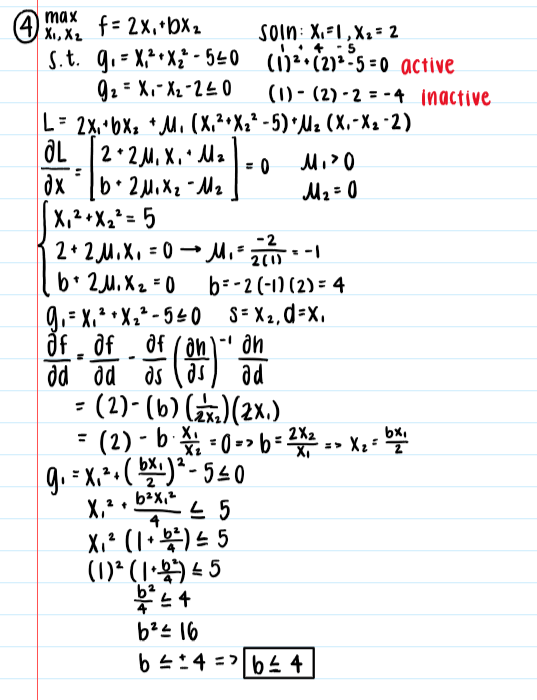 ④ max x₁,x₂ f = 2x₁+bx₂ soln: x₁=1, x₂=2
s.t. g₁ = x₁²+x₂²-5≤0 (1)²+(2)²-5=0 active
1 + 4 - 5
g₂ = x₁-x₂-2≤0 (1)-(2)-2 = -4 inactive
L = 2x₁+bx₂ + μ₁(x₁²+x₂²-5)+μ₂(x₁-x₂-2)
∂L/∂x = [2+2μ₁x₁+μ₂ ; b+2μ₁x₂-μ₂] = 0 μ₁>0 μ₂=0
{ x₁²+x₂²=5
2+2μ₁x₁=0 → μ₁ = -2/2(1) = -1
b+2μ₁x₂=0 b=-2(-1)(2)=4
g₁=x₁²+x₂²-5≤0 s=x₂, d=x₁
∂f/∂d = ∂f/∂d - ∂f/∂s (∂h/∂s)⁻¹ ∂h/∂d
= (2)-(b)(1/2x₂)(2x₁)
= (2)-b·x₁/x₂ = 0 => b = 2x₂/x₁ => x₂ = bx₁/2
g₁=x₁²+(bx₁/2)²-5≤0
x₁² + b²x₁²/4 ≤ 5
x₁²(1+b²/4)≤5
(1)²(1+b²/4)≤5
b²/4 ≤ 4
b² ≤ 16
b ≤ ±4 => b ≤ 4